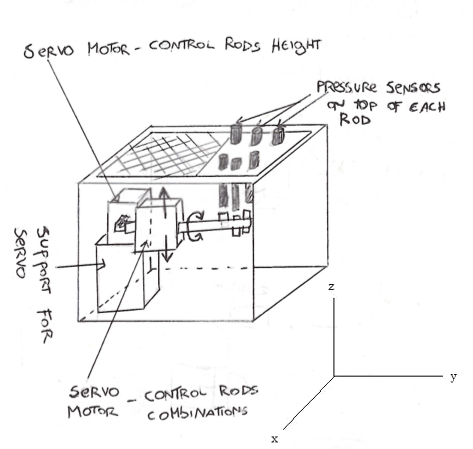 SERVO MOTOR - CONTROL RODS HEIGHT
PRESSURE SENSORS
ON TOP OF EACH
ROD
SUPPORT FOR
SERVO
z
y
x
SERVO
MOTOR - CONTROL RODS
COMBINATIONS